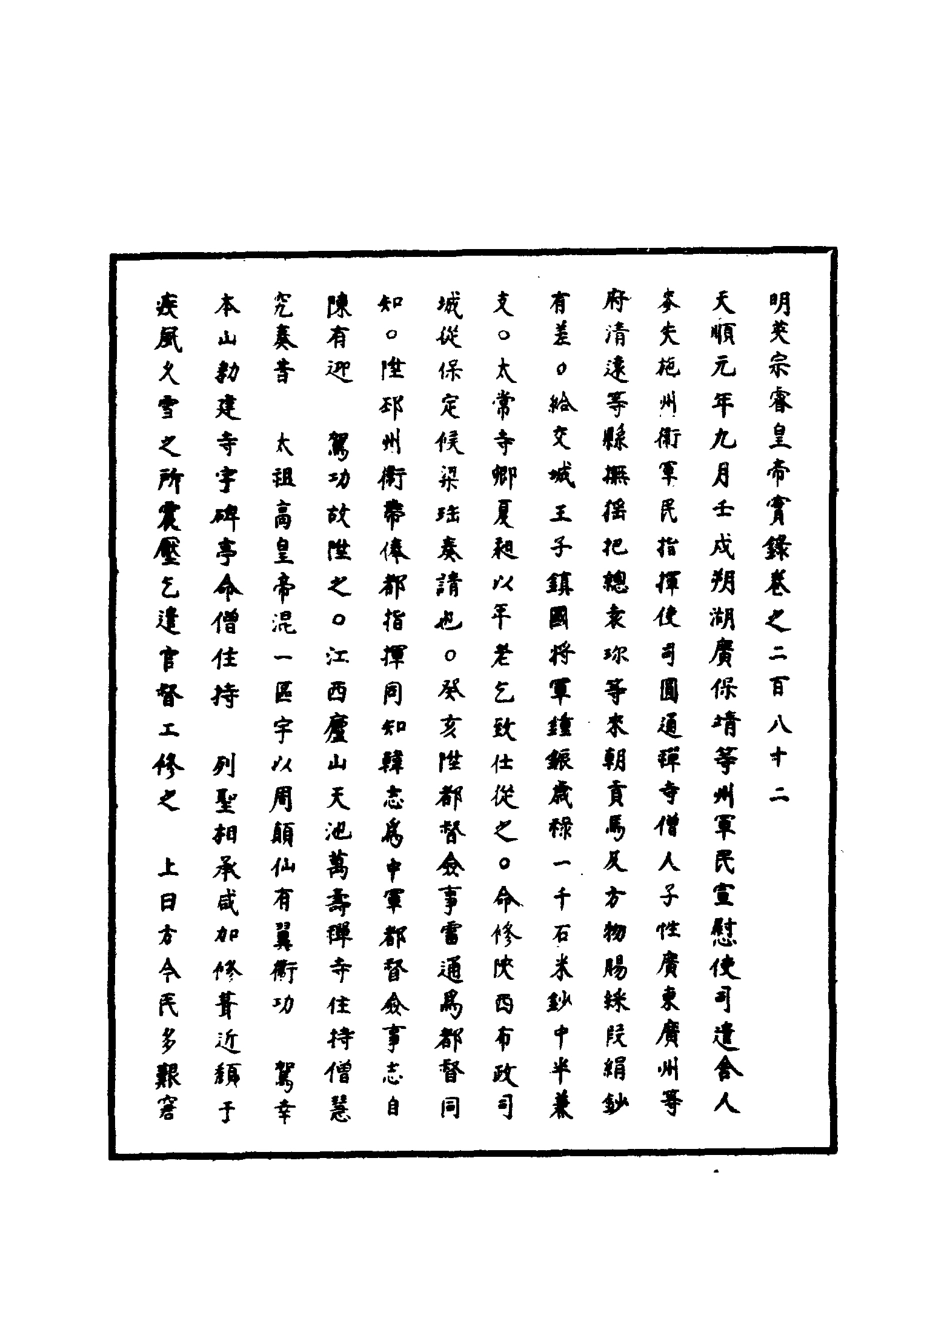 明英宗睿皇帝實錄卷之二百八十二
天順元年九月壬戌朔湖廣保靖等州軍民宣慰使司遣舍人
麥失施州衛軍民指揮使司圓通禪寺僧人子性廣東廣州等
府清遠等縣撫猺把總袁珎等來朝貢馬及方物賜綵段絹鈔
有差○給交城王子鎮國將軍鍾鋠歲祿一千石米鈔中半兼
支○太常寺卿夏昶以年老乞致仕從之○命修陝西布政司
城從保定候梁珤奏請也○癸亥陞都督僉事雷通爲都督同
知○陞邳州衛帶俸都指揮同知韓志爲中軍都督僉事志自
陳有迎 駕功故陞之○江西廬山天池萬壽禪寺住持僧慧
究奏昔 太祖高皇帝混一區宇以周顛仙有翼衛功 駕幸
本山勅建寺宇碑亭命僧住持 列聖相承咸加修葺近頹于
疾風久雪之所震壓乞遣官督工修之 上曰方今民多艱窘